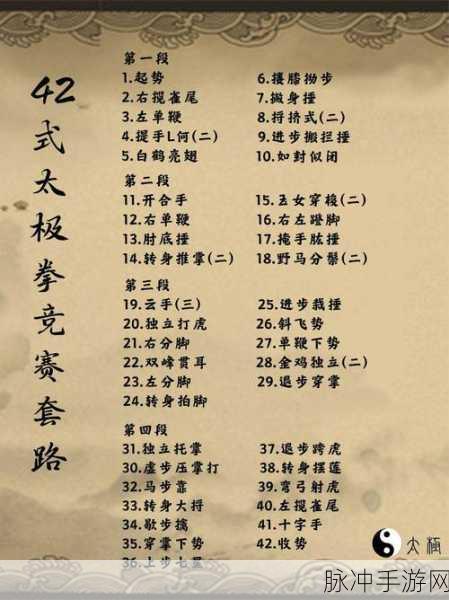 42式太极拳竞赛套路
第一段
1.起势
2.右揽雀尾
3.左单鞭
4.提手L何(二)
5.白鹤亮翅
6.搂膝拗步
7.撇身捶
8.捋挤式(二)
9.进步搬拦捶
10.如封似闭
第二段
11.开合手
12.右单鞭
13.肘底捶
14.转身推掌(二)
15.玉女穿梭(二)
16.右左蹬脚
17.掩手肱捶
18.野马分鬃(二)
第三段
19.云手(三)
20.独立打虎
21.右分脚
22.双峰贯耳
23.左分脚
24.转身拍脚
25.进步栽捶
26.斜飞势
27.单鞭下势
28.金鸡独立(二)
29.退步穿掌
第四段
31.独立托掌
30.虚步压掌打
32.马步靠
33.转身大捋
34.歇步擒
35.穿掌下势
36.上步七星
37.退步跨虎
38.转身摆莲
39.弯弓射虎
40.左揽雀尾
41.十字手
42.收势
太極
脉冲手游网